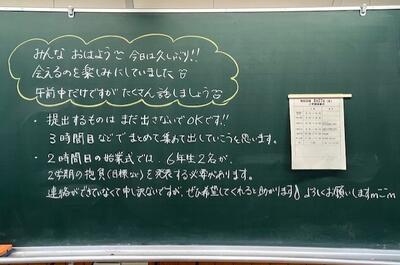 みんな おはよう 今日は久しぶり!!
会えるのを楽しみにしていました
午前中だけですが たくさん話しましょう
・ 提出するものは まだ出さないでOKです!!
３時間目などで まとめて集めて出していこうと思います。
・ ２時間目の始業式では、６年生２名が、
２学期の抱負(目標など)を発表する必要があります。
連絡ができていなくて申し訳ないですが、ぜひ希望してくれると助かります よろしくお願いしますm--m